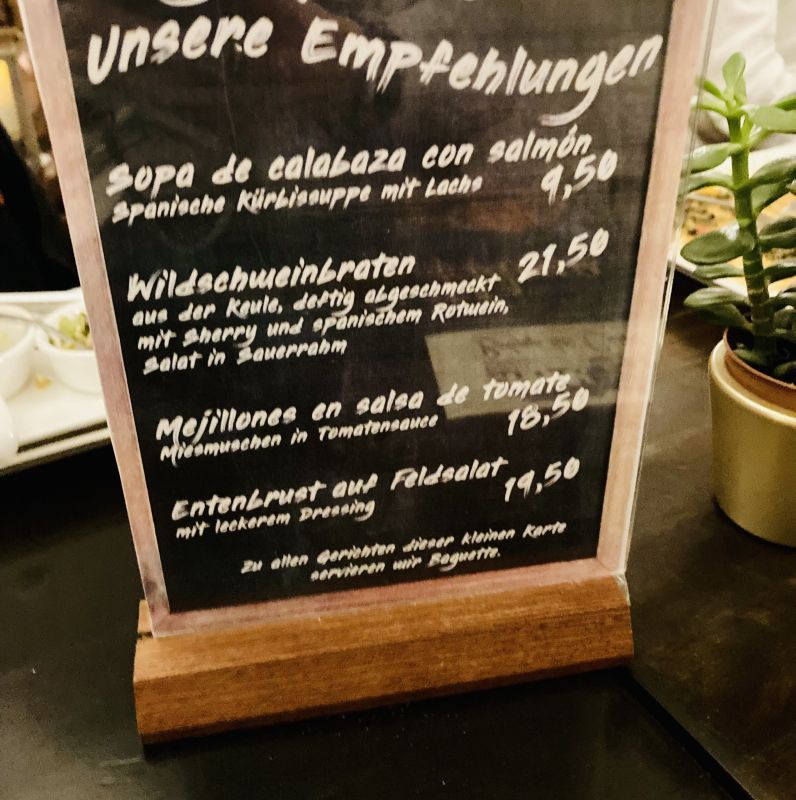 Unsere Empfehlungen
Sopa de calabaza con salmón
Spanische Kürbissuppe mit Lachs 9,50
Wildschweinbraten 21,50
aus der Keule, deftig abgeschmeckt
mit Sherry und spanischem Rotwein,
Salat in Sauerrahm
Mejillones en salsa de tomate
Miesmuschen in Tomatensauce 18,50
Entenbrust auf Feldsalat
mit leckerem Dressing 19,50
Zu allen Gerichten dieser kleinen Karte
servieren wir Baguette.